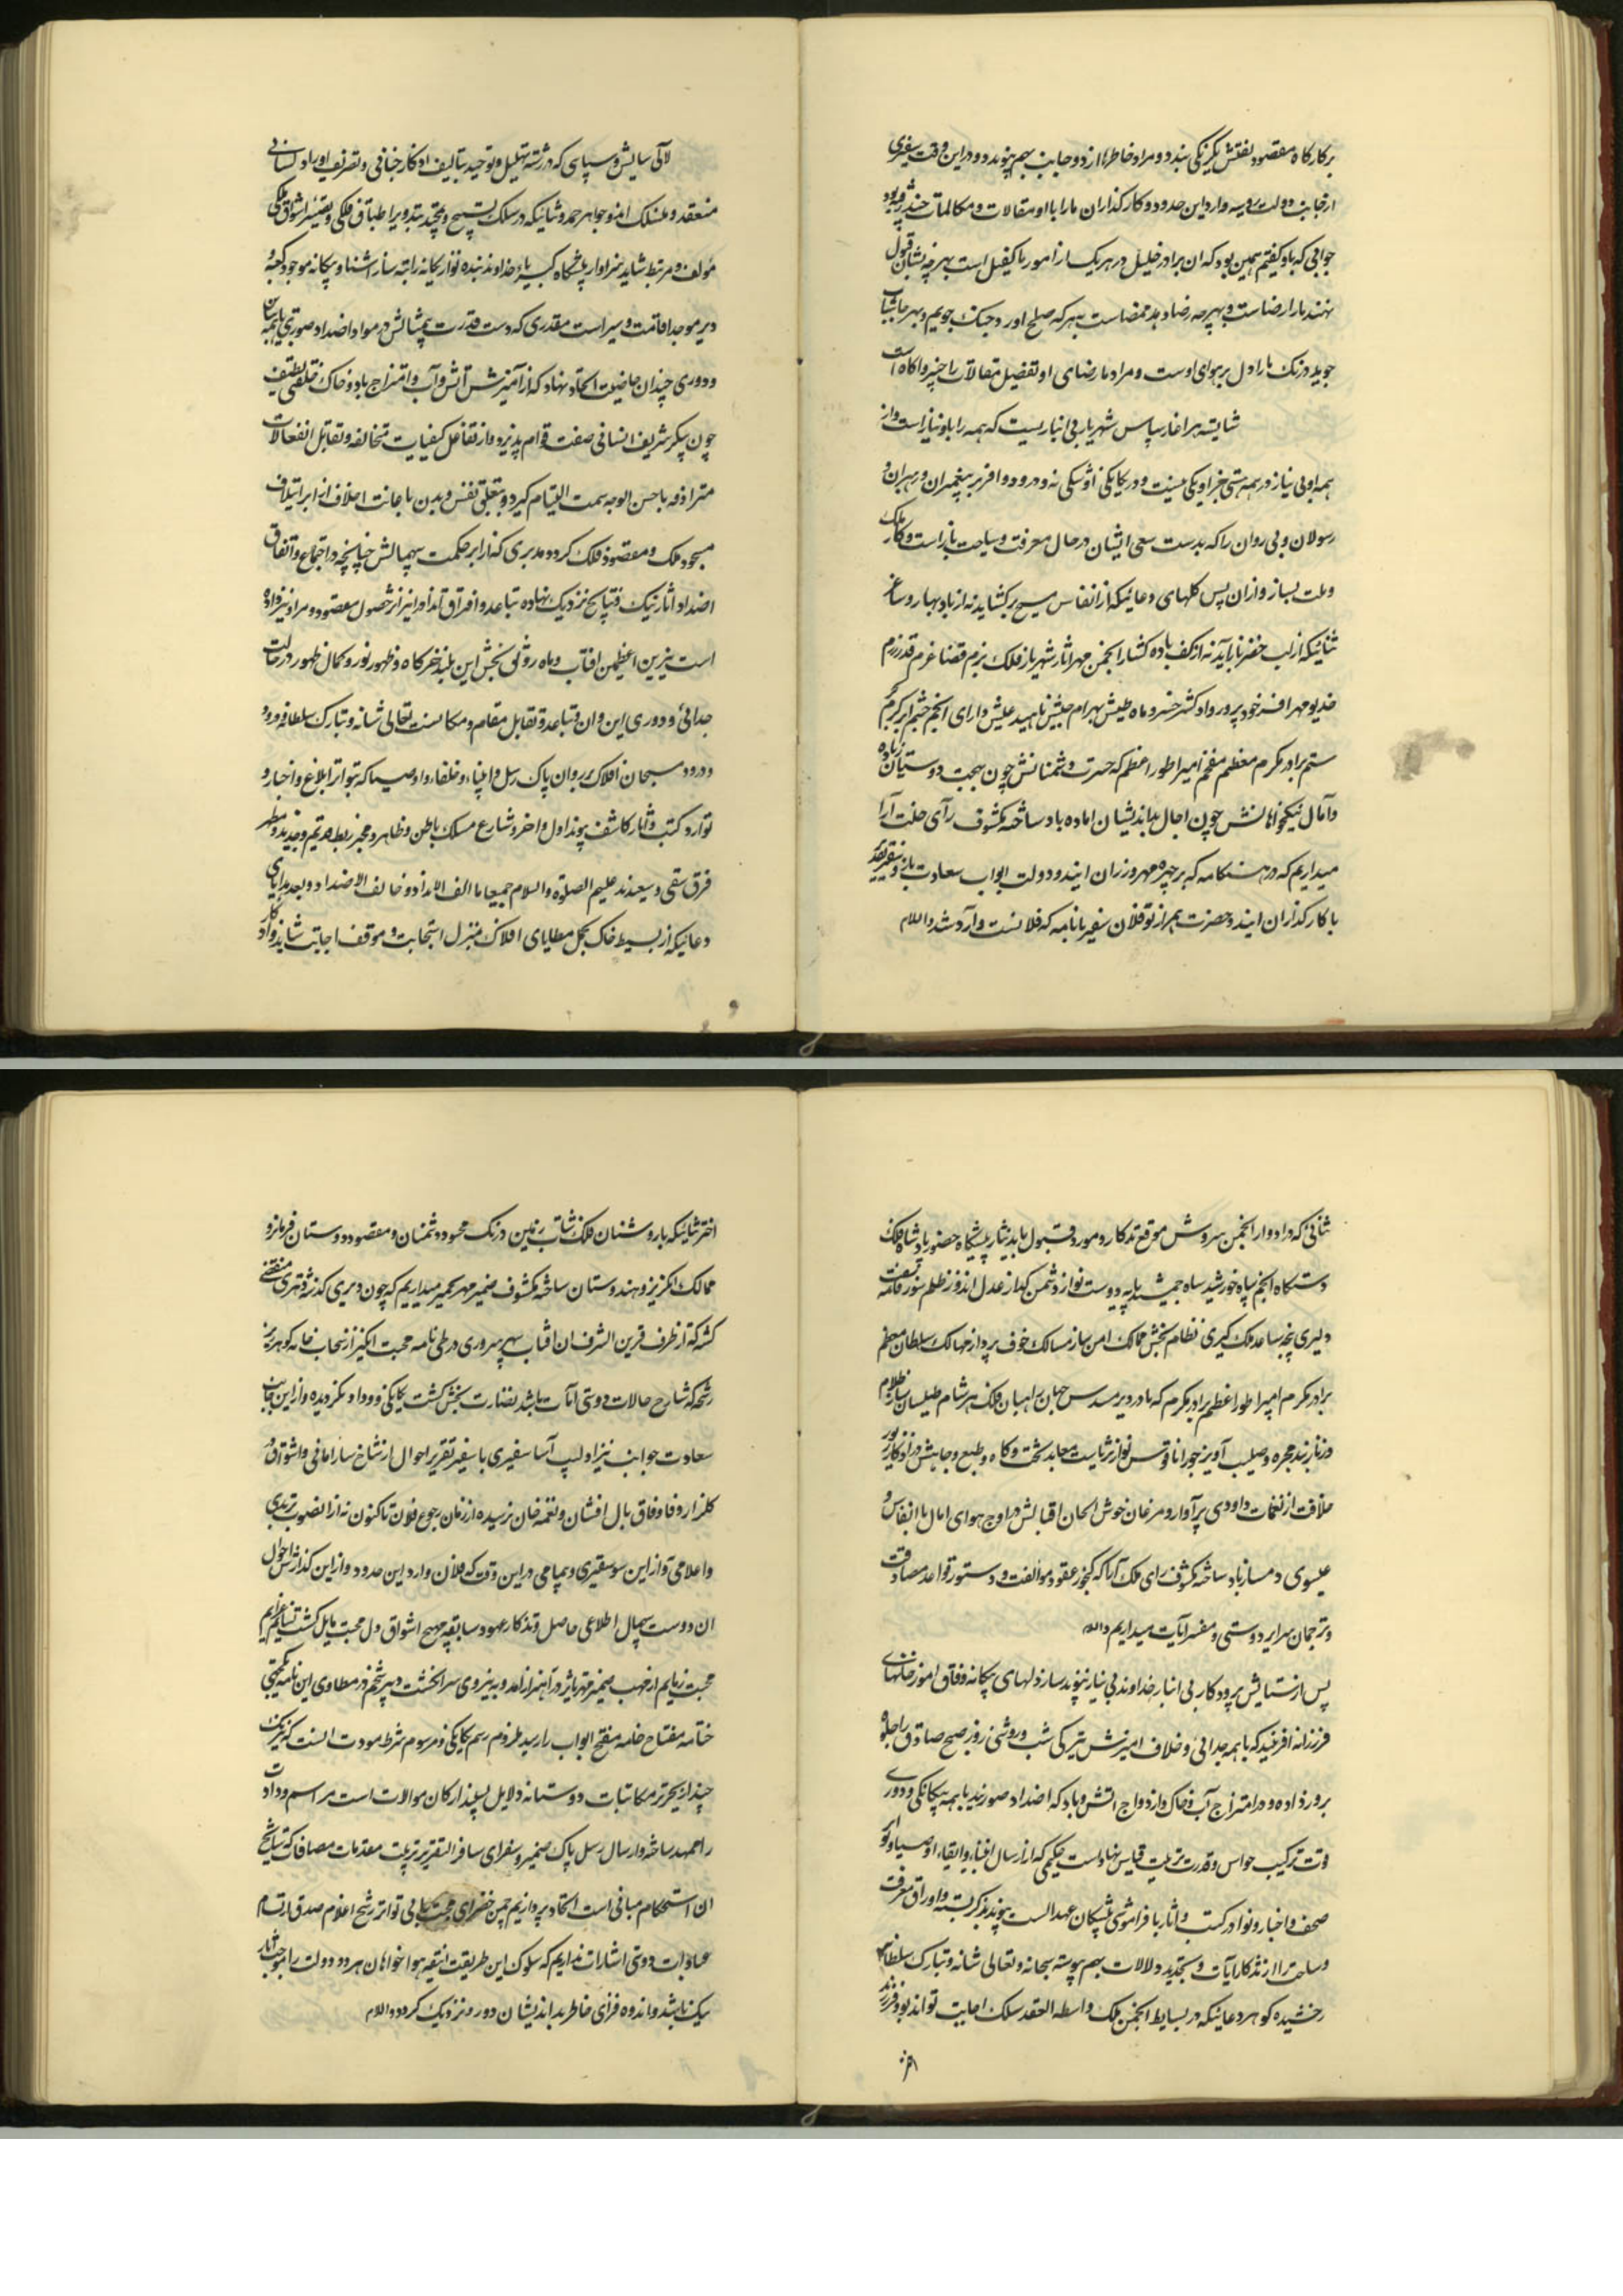 برکارکاه مقصود نقش یکرنکی بندد و مراد خاطرها از دو جانب بهم پیوندد و در این وقت سفیری
از جانب دولت روسیه وارد این حدود و کارکذاران ما را با او مقالات و مکالمات چند رفته بود
جوابی که باو کفتیم همین بود که ان برادر خلیل در هر یک از امور ما کفیل است بهر چه شان قبول
نهند ما را رضاست و بهر چه رضا دهد ممضاست بهر که صلح اورد جنک جوییم و بهر جا شتاب
جوید درنک ما را دل بر هوای اوست و مراد ما رضای او تفصیل مقالات را خبر و اکاه است
شایسته هر اغاز سپاس شهریار بی انبازیست که همه را باو نیاز است و از
همه او بی نیاز در همه هستی جز او یکی نیست و در یکانکی او شکی نه و درود و افرین بپیغمبران و رهبران و
رسولان و پی روان را که بدست سعی ایشان در حال معرفت و سیاحت باز است و کار ملک
و ملت بساز و از ان پس کلهای دعائیکه از انفاس مسیح بر کشاید نه از باد بهار و ساغر
ثنائیکه از لب خضر باز آید نه از کف باده کشار انجمن مهر اثار شهریار فلک بزم قضا عزم قدر رزم
خدیو مهر افسر خود پرور داد کستر خسرو ماه طیش بهرام جیش ناهید عیش دارای انجم حشم ابر کرم
ستم برادر مکرم معظم مفخم امپراطور اعظم که حسرت دشمنانش چون بهجت دوستیان زیاده
و آمال نیکخواهانش چون اجال بداندیشان اماده باد ساخته مکشوف رآی خلت آرا
میداریم که در هنکامه که بر چهره مهر و زران ایند و دولت ابواب سعادت باز و سفیر تقریر
با کارکذاران ایند و حضرت همراز تو فلان سفیر با نامه که فلانست وارد شد والسلام
لآلی ستایش و سپاسی که در رشته تهلیل و توحید بتالیف اذکار جنانی و تصریف اوراد لسانی
منعقد و منسلک امنو جواهر حمد و ثنائیکه در سلک تسبیح و تمجید بتدویر اطباق فلکی و تقیسر اشواق ملکی
مؤلف و مرتبط شاید سزاوار پیشکاه کبریاء خداوند بنده نواز یکانه راتبه ساز اشنا و بیکانه موجود کعبه و
دیر موجد اقامت و سیر است مقدری که دست قدرت بیمثالش در مواد اضداد صورتی با همه تباین
و دوری چندان خاصیت اتحاد نهاد که از آمیزش آتش و آب و امتزاج باد و خاک خلقی لطیف
چون پیکر شریف انسانی صفت قوام پذیرد و از تفاعل کیفیات متخالفه و تقابل انفعالات
مترادفه باحسن الوجه سمت التیام کیرد و بتعلق نفس و بدن با جانت اخلاف از ابر ائتلاف
مسجود ملک و مقصود فلک کردد مدبری که از ابر حکمت بیهمالش چنانچه در اجتماع و اتفاق
اضداد اثار نیک و نتایج نزدیک نهاده تباعد و افتراق انداد را نیز از حصول مقصود و مراد نیز داده
است نیرین اعظمین افتاب و ماه رونق بخش این بلند خرکاه و ظهور نور و کمال ظهور در حالت
جدائی و دوری این و ان و تباعد و تقابل مقام و مکانست تعالی شانه و تبارک سلطانه و ورود
درود مسبحان افلاک بر روان پاک رسل و انبیاء و خلفاء و اوصیا که بتواتر ابلاغ و اخبار و
توارد کتب و آثار کاشف پیوند اول و اخر و شارع مسلک باطن و ظاهر و مخبر ربط قدیم و جدید و مظهر
فرق شقی و سعیدند علیهم الصلوة و السلام جمیعا ما الف الانداد و خالف الاضداد و بعد هدایای
دعائیکه از بسیط خاک بحمل مطایای افلاک بمنزل استجابت و موقف اجابت شاید و اذکار
ثنائی که داد و ار انجمن سروش موقع تذکار و مورد قبول یابد نثار پیشکاه حضور پادشاه فلک
دستکاه انجم سپاه خورشید سایه جمشید پایه دوست نواز دشمن کداز عدل اندوز ظلم سوز قامت
دلیری پنجه ساعد ملک کیری نظام بخش ممالک امن ساز مسالک خوف پرداز مهالک سلطان معظم
برادر مکرم امپراطور اعظم برادر مکرم که تا در دیر مسدس جهان راهبان فلک هر شام طیلسان ساز ظلام
و زنار بند مجره و صلیب آویز جوزا ناقوس نواز ثریاست معابد تخت و کاه و طبع و جاهش از اذکار زبور
خلافت از نغمات داودی پر آواز و مرغان خوش الحان اقبالش در اوج هوای امال با انفاس
عیسوی دمساز باد ساخته مکشوف رای ملک آرا که کنجور عقود موالفت و دستور قواعد مصادقت
و ترجمان سرایر دوستی و مفسر آیات میداریم والسلام
پس از ستایش پرورد کار بی انباز خداوند بی نیاز پیوند ساز دلهای بیکانه وفاق اموز خلقهای
فرزانه افرینید که با همه جدائی و خلاف امیزش تیرکی شب و روشنی روز صبح صادق را جلوه
بروز داده و در امتزاج آب و خاک و ازدواج اتش و باد که اضداد صورند با همه بیکانکی و دوری
قوت ترکیب حواس و قدرت تربیت قیاس نهاد است حکیمی که از ارسال انبیاء و ابقاء اوصیا و تواتر
صحف و اخبار و نوادر کتب و اثار با فراموشی پیشکان عهد الست پیوند ذکر بسته و اوراق معرفت
و ساحت را از تذکار آیات و تجدید دلالات بهم پیوسته سبحانه و تعالی شانه و تبارک سلطانه
رخشنده کوهر دعائیکه در بسایط انجمن ملک واسطه العقد سلک اجابت تواند بود و فرزنده
اختر
اختر ثنائیکه با روشنان فلک شتاب زمین درنک محسود دشمنان و مقصود دوستان فرمانرو
ممالک انکریز و هندوستان ساخته مکشوف ضمیر مهر تخمیر میداریم که چون دیری کذشته و قمری منقضی
کشته که از طرف قرین الشرف ان افتاب سپهر سروری در طی نامه محبت انکیز از سحاب خامه کوهر ریز
رشحه که شارح حالات دوستی آیات باشد نضارت بخش کشت یکانکی و وداد نکردیده و از این جانب
سعادت جوانب نیز اولیب آسا سفیری با سفیر تقریر احوال از شاخسار امانی و اشواق در
کلزار وفا و وفاق بال افشان و نغمه خان نرسیده از زمان رجوع فلان تاکنون نه از انصوب ترددی
و اعلامی و از این سو سفیری و پیامی در این وقت که فلان وارد این حدود و از این کذارش احوال
ان دوست بیهمال اطلاعی حاصل و تذکار عهود سابقه مهیج اشواق دل محبت مایل کشت
محبت زدایم از مهب ضمیر مهر تاثیر در آهتزاز آمد و به نیروی سر انکشت دبیر تخم در مطاوی این نامه یکجهتی
ختامه مفتاح خامه مفتح ابواب راز رسید ملزوم رسم یکانکی و مرسوم شرط مودت انست که هر یک
چند از تحریر مکاتبات دوستانه دلایل پسند ارکان موالات است مراسم وداد
را ممهد ساخته و ارسال رسل پاک ضمیر و سفرای سافر التقریر ترتیب مقدمات مصافات که نتایج
ان استحکام مبانی است اتحاد پردازیم چمن خضرای محبت بی تواتر رشح اعلام صدق ارتسام
عبارات دوستی اشارات نداریم که سلوک این طریقت انیقه هوا خواهان هر دو دولت را موجب آثار
نیک باشد و اندوه فزای خاطر بد اندیشان دور و نزدیک کردد والسلام